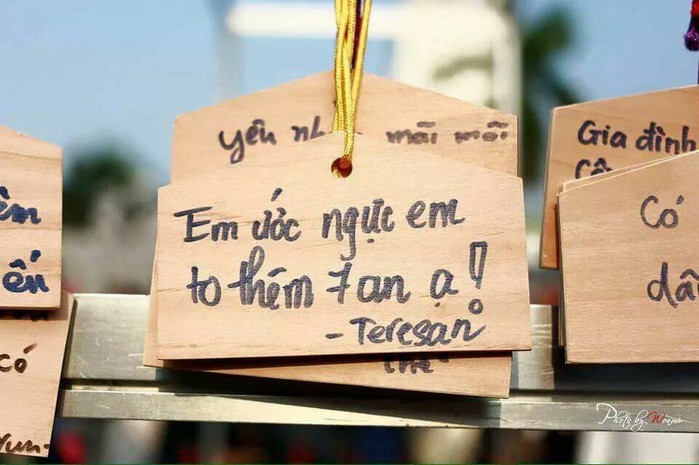 yêu
mãi mãi
Em ước ngực em
to thêm 7an ạ!
- Teresan
Gia đình
Có
ến
có
Photo by